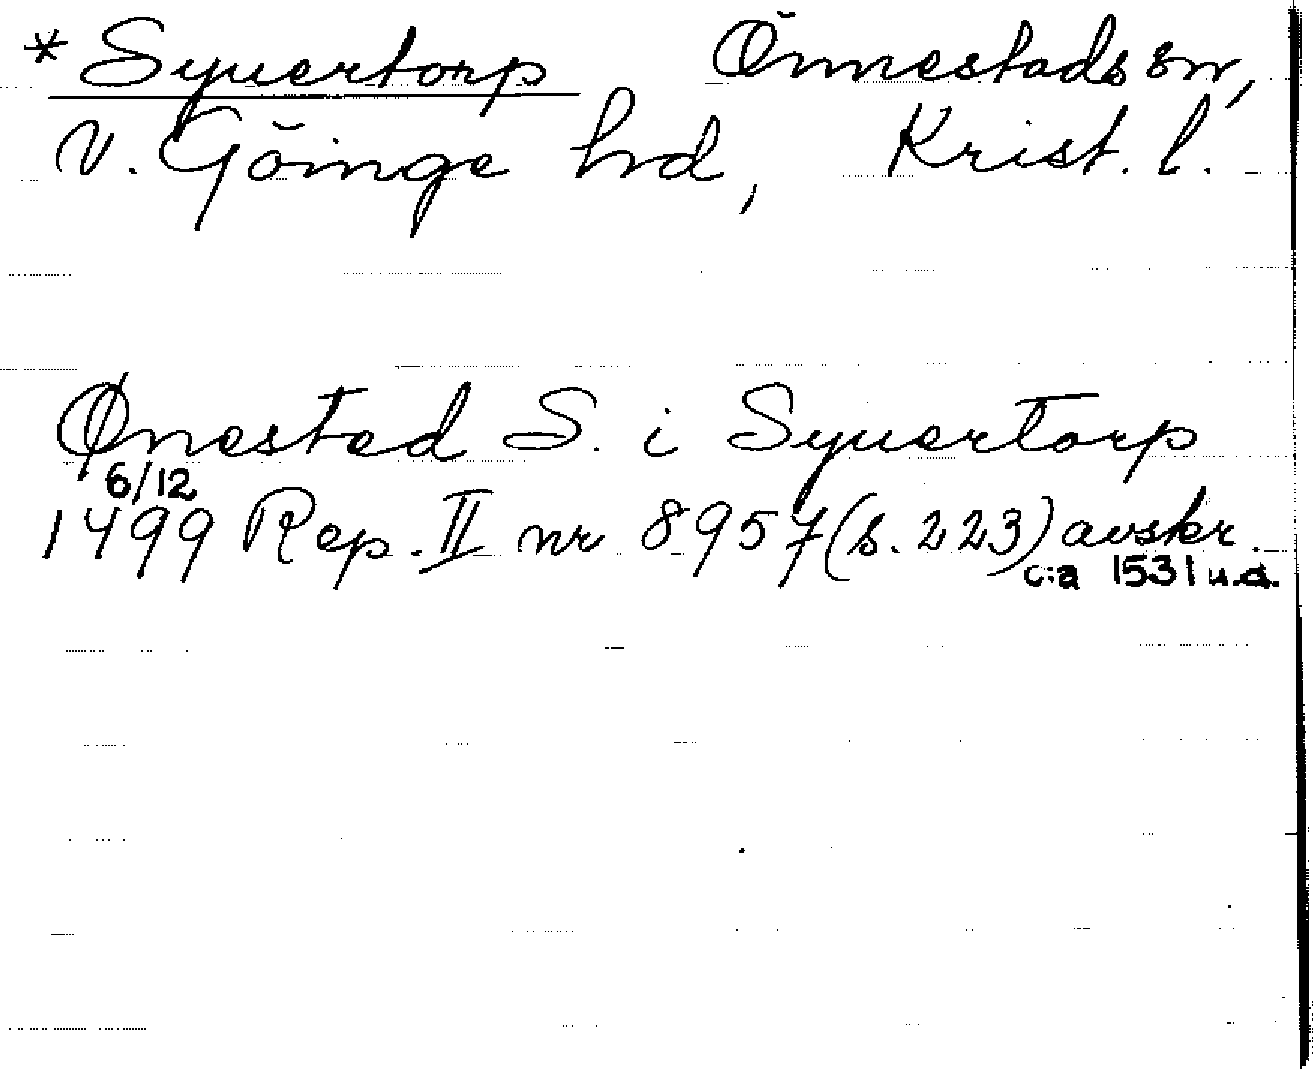 * Syuertorp Önnestads sn,
V. Göinge hd, Krist. l.
Ønested S. i Syuertorp
6/12
1499 Rep. II nr 8957 (s. 223) avskr.
c:a 1531 u.d.